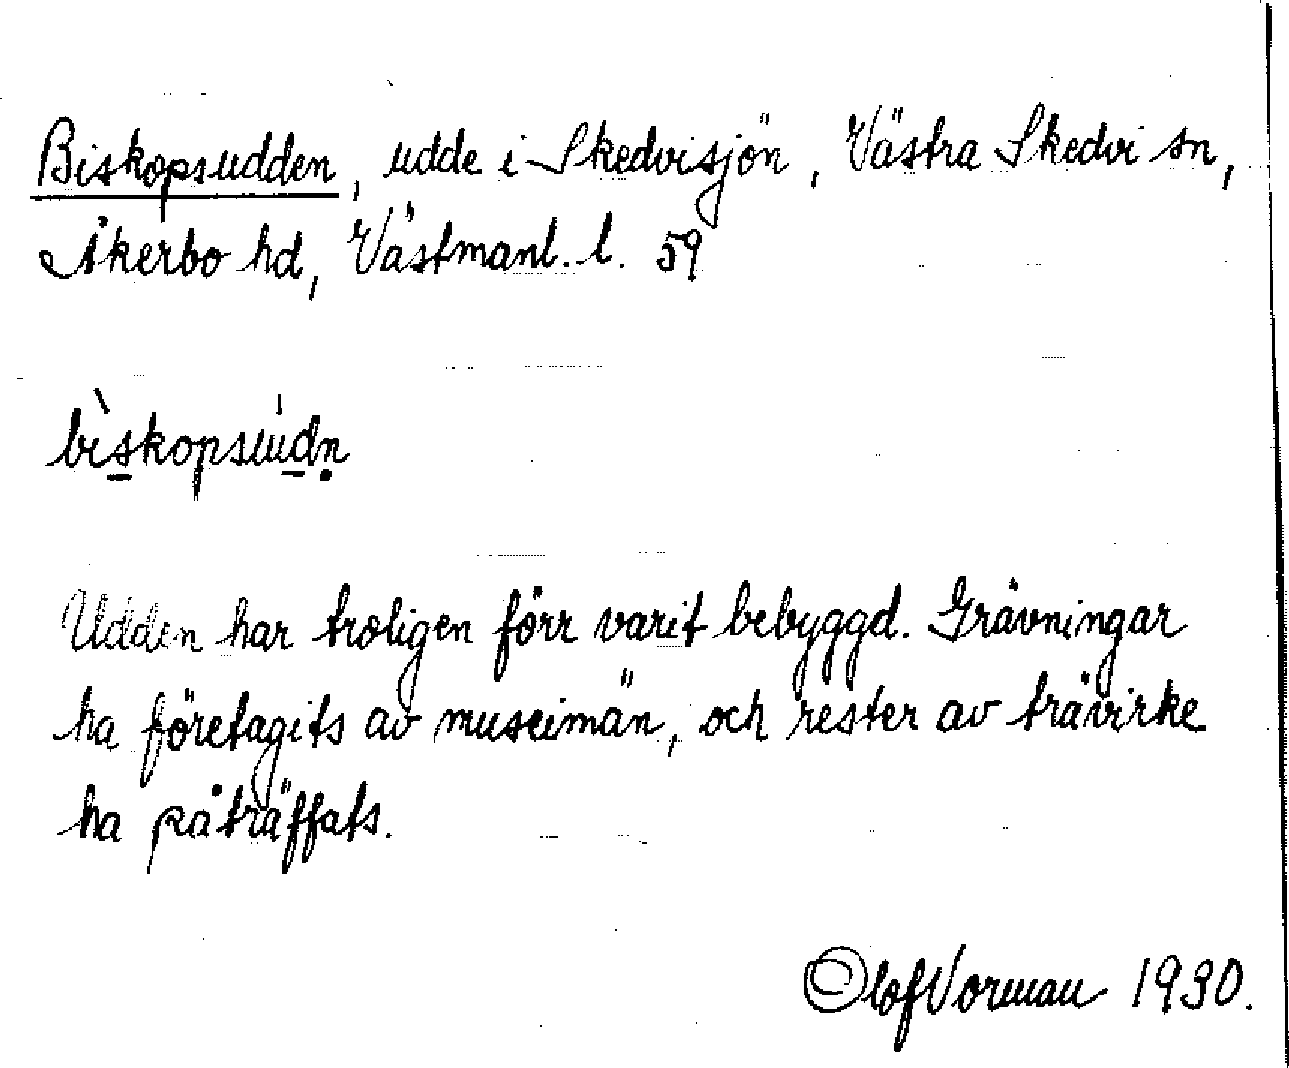 Biskopsudden, udde i Skedvisjön, Västra Skedvi sn,
Åkerbo hd, Västmanl. l. 59
bìs̲kopsuíd̲ṇ
Udden har troligen förr varit bebyggd. Grävningar
ha företagits av museimän, och rester av trävirke
ha påträffats.
Olof Vorman 1930.